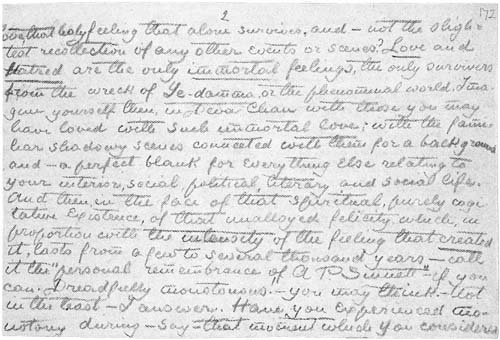 2
572
that holy feeling that alone survives, and – not the sligh=
test recollection of any other events or scenes. Love and
Hatred are the only immortal feelings, the only survivors
from the wreck of Ye-damma, or the phenomenal world. Ima=
gine yourself then, in Deva Chan with those you may
have loved with such immortal love; with the fami=
liar shadowy scenes connected with them for a background
and – a perfect blank for everything else relating to
your interior, social, political, literary and social life.
And then, in the face of that spiritual, purely cogi
tative existence, of that unalloyed felicity which, in
proportion with the intensity of the feeling that created
it, lasts from a few to several thousand years – call
it the "personal remembrance of A P Sinnett" – if you
can. Dreadfully monotonous – you may think. – Not
in the least – I answer. Have you experienced mo=
notony during – say – that moment which you considered